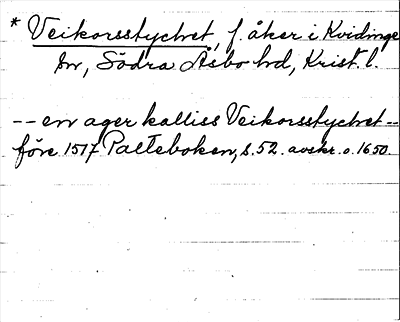 * Veikorsstychet, f. åker i Kvidinge
sn, Södra Åsbo hd, Krist. l.
-- en ager kalliss Veikorsstychet --
före 1517 Palteboken, s. 52. avskr. o. 1650